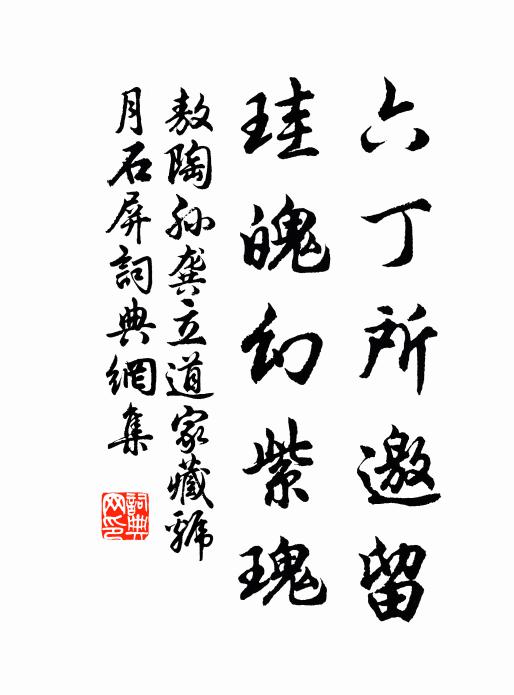 六丁所邀留
珪魄幻紫瑰
敖陶孙龚立道家藏號
月石屏詞典網集
詞典網印